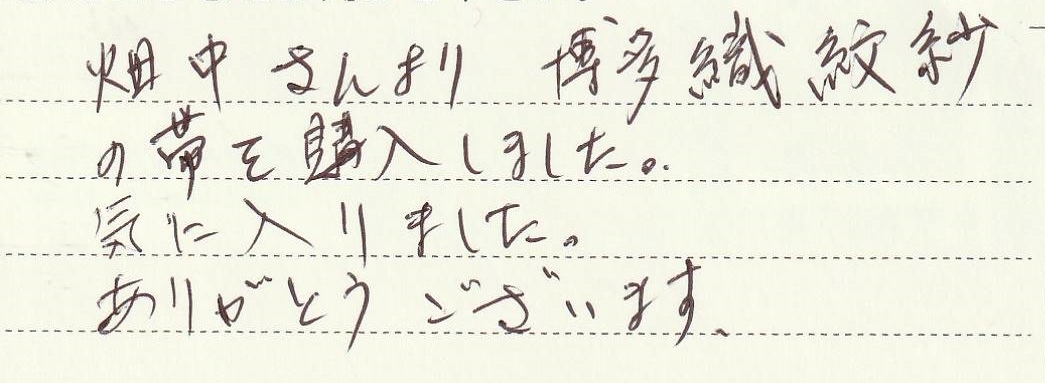 畑中さんより 博多織紋紗
の帯を購入しました。
気に入りました。
ありがとうございます。